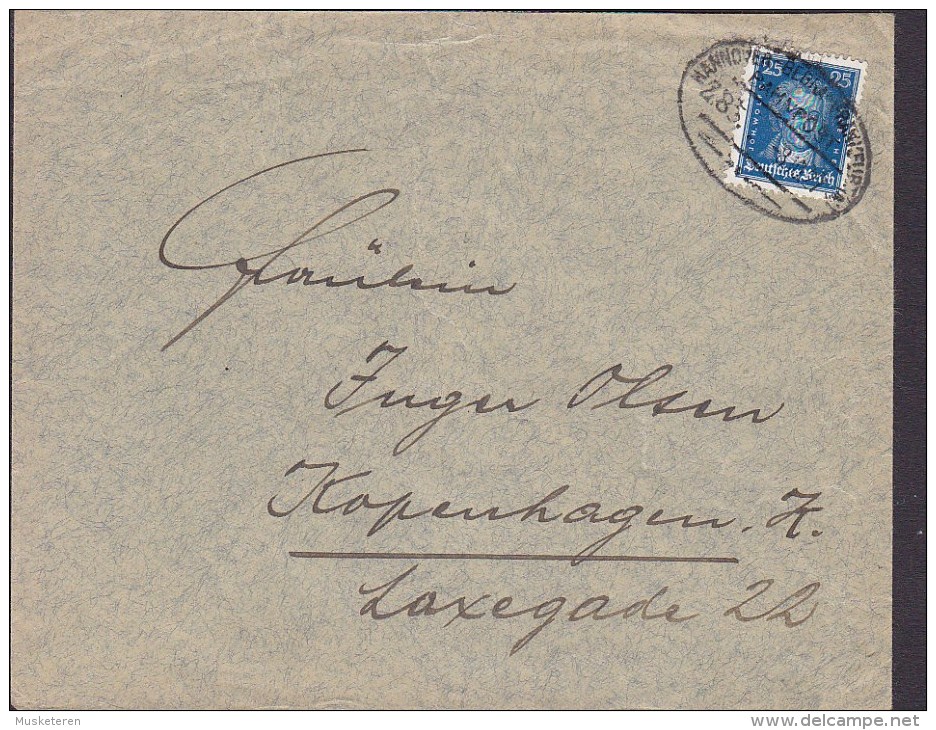 HANNOVER
BAHNPOST
Z.83
25 25
Deutsches Reich
Fräulein
Inger Olsen
Kopenhagen. K.
Laxegade 22
Musketeren
delcampe.net